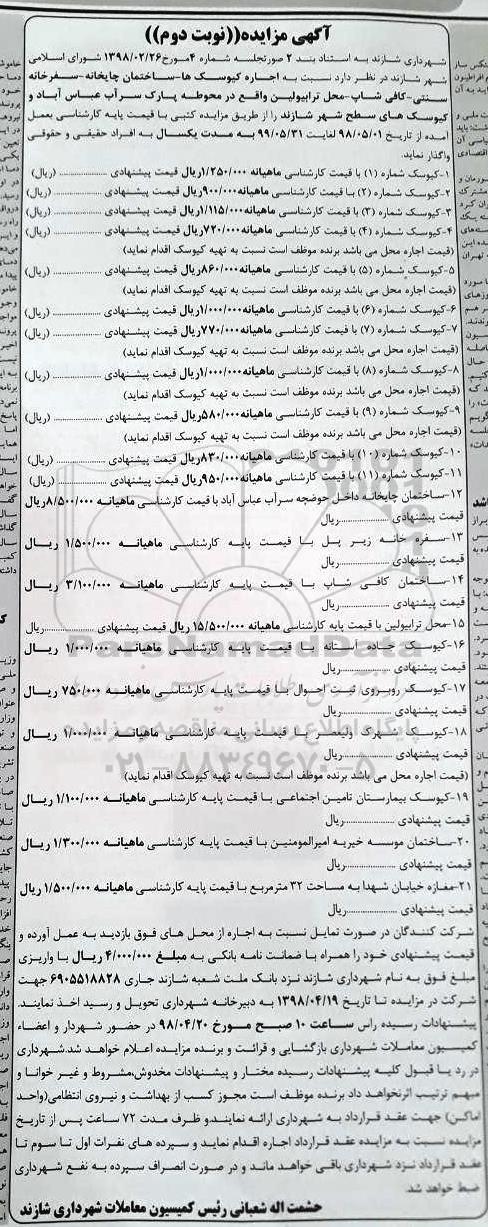 آگهی مزایده((نوبت دوم))
شهرداری شازند به استناد بند ۲ صورتجلسه شماره ۴مورخ ۱۳۹۸/۰۲/۲۶ شورای اسلامی
شهر شازند در نظر دارد نسبت به اجاره کیوسک ها-ساختمان چایخانه-سفرخانه
سنتی-کافی شاپ-محل ترابیولین واقع در محوطه پارک سرآب عباس آباد و
کیوسک های سطح شهر شازند را از طریق مزایده کتبی با قیمت پایه کارشناسی بعمل
آمده از تاریخ ۹۸/۰۵/۰۱ لغایت ۹۹/۰۵/۳۱ به مدت یکسال به افراد حقیقی و حقوقی
واگذار نماید.
۱-کیوسک شماره (۱) با قیمت کارشناسی ماهیانه ۱/۲۵۰/۰۰۰ریال قیمت پیشنهادی .......... (ریال)
۲-کیوسک شماره (۲) با قیمت کارشناسی ماهیانه ۹۰۰/۰۰۰ریال قیمت پیشنهادی .......... (ریال)
۳-کیوسک شماره (۳) با قیمت کارشناسی ماهیانه ۱/۱۱۵/۰۰۰ریال قیمت پیشنهادی .......... (ریال)
۴-کیوسک شماره (۴) با قیمت کارشناسی ماهیانه ۷۲۰/۰۰۰ریال قیمت پیشنهادی .......... (ریال)
(قیمت اجاره محل می باشد برنده موظف است نسبت به تهیه کیوسک اقدام نماید)
۵-کیوسک شماره (۵) با قیمت کارشناسی ماهیانه۸۶۰/۰۰۰ریال قیمت پیشنهادی .......... (ریال)
(قیمت اجاره محل می باشد برنده موظف است نسبت به تهیه کیوسک اقدام نماید)
۶-کیوسک شماره (۶) با قیمت کارشناسی ماهیانه ۱/۰۰۰/۰۰۰ریال قیمت پیشنهادی .......... (ریال)
۷-کیوسک شماره (۷) با قیمت کارشناسی ماهیانه ۷۷۰/۰۰۰ریال قیمت پیشنهادی .......... (ریال)
(قیمت اجاره محل می باشد برنده موظف است نسبت به تهیه کیوسک اقدام نماید)
۸-کیوسک شماره (۸) با قیمت کارشناسی ماهیانه۱/۰۰۰/۰۰۰ریال قیمت پیشنهادی .......... (ریال)
(قیمت اجاره محل می باشد برنده موظف است نسبت به تهیه کیوسک اقدام نماید)
۹-کیوسک شماره (۹) با قیمت کارشناسی ماهیانه ۵۸۰/۰۰۰ریال قیمت پیشنهادی .......... (ریال)
(قیمت اجاره محل می باشد برنده موظف است نسبت به تهیه کیوسک اقدام نماید)
۱۰-کیوسک شماره (۱۰) با قیمت کارشناسی ماهیانه ۸۳۰/۰۰۰ریال قیمت پیشنهادی .......... (ریال)
۱۱-کیوسک شماره (۱۱) با قیمت کارشناسی ماهیانه ۹۵۰/۰۰۰ریال قیمت پیشنهادی .......... (ریال)
۱۲-ساختمان چایخانه داخل حوضچه سرآب عباس آباد با قیمت کارشناسی ماهیانه ۸/۵۰۰/۰۰۰ریال
قیمت پیشنهادی ..........ریال
۱۳-سفره خانه زیر پل با قیمت پایه کارشناسی ماهیانه ۱/۵۰۰/۰۰۰ ریال
قیمت پیشنهادی ..........ریال
۱۴-ساختمان کافی شاپ با قیمت پایه کارشناسی ماهیانه ۳/۱۰۰/۰۰۰ ریال
قیمت پیشنهادی ..........ریال
۱۵-محل ترابیولین با قیمت پایه کارشناسی ماهیانه ۱۵/۵۰۰/۰۰۰ریال قیمت پیشنهادی ..........ریال
۱۶-کیوسک جاده آستانه با قیمت پایه کارشناسی ماهیانه ۱/۰۰۰/۰۰۰ ریال
قیمت پیشنهادی ..........ریال
۱۷-کیوسک روبروی ثبت احوال با قیمت پایه کارشناسی ماهیانه ۷۵۰/۰۰۰ ریال
قیمت پیشنهادی ..........ریال
۱۸-کیوسک شهرک ولیعصر با قیمت پایه کارشناسی ماهیانه ۱/۰۰۰/۰۰۰ ریال
قیمت پیشنهادی ..........ریال
(قیمت اجاره محل می باشد برنده موظف است نسبت به تهیه کیوسک اقدام نماید)
۱۹-کیوسک بیمارستان تامین اجتماعی با قیمت پایه کارشناسی ماهیانه ۱/۱۰۰/۰۰۰ ریال
قیمت پیشنهادی ..........ریال
۲۰-ساختمان موسسه خیریه امیرالمومنین با قیمت پایه کارشناسی ماهیانه ۱/۳۰۰/۰۰۰ ریال
قیمت پیشنهادی ..........ریال
۲۱-مغازه خیابان شهدا به مساحت ۳۲ مترمربع با قیمت پایه کارشناسی ماهیانه ۱/۵۰۰/۰۰۰ ریال
قیمت پیشنهادی ..........ریال
شرکت کنندگان در صورت تمایل نسبت به اجاره از محل های فوق بازدید به عمل آورده و
قیمت پیشنهادی خود را همراه با ضمانت نامه بانکی به مبلغ ۴/۰۰۰/۰۰۰ ریال با واریزی
مبلغ فوق به نام شهرداری شازند نزد بانک ملت شعبه شازند جاری ۶۹۰۵۵۱۸۸۲۸ جهت
شرکت در مزایده تا تاریخ ۱۳۹۸/۰۴/۱۹ به دبیرخانه شهرداری تحویل و رسید اخذ نمایند.
پیشنهادات رسیده راس ساعت ۱۰ صبح مورخ ۹۸/۰۴/۲۰ در حضور شهردار و اعضاء
کمیسیون معاملات شهرداری بازگشایی و قرائت و برنده مزایده اعلام خواهد شد.شهرداری
در رد یا قبول کلیه پیشنهادات رسیده مختار و پیشنهادات مخدوش،مشروط و غیر خوانا و
مبهم ترتیب اثرنخواهد داد برنده موظف است مجوز کسب از بهداشت و نیروی انتظامی(واحد
اماکن) جهت عقد قرارداد به شهرداری ارائه نمایند.و ظرف مدت ۷۲ ساعت پس از تاریخ
مزایده نسبت به مزایده عقد قرارداد اجاره اقدام نماید و سپرده های نفرات اول تا سوم تا
عقد قرارداد نزد شهرداری باقی خواهد ماند و در صورت انصراف سپرده به نفع شهرداری
ضبط خواهد شد.
حشمت اله شعبانی رئیس کمیسیون معاملات شهرداری شازند
ParsNamadData
پایگاه اطلاع رسانی مناقصه و مزایده
۰۲۱-۸۸۳۴۹۶۷۰-۵